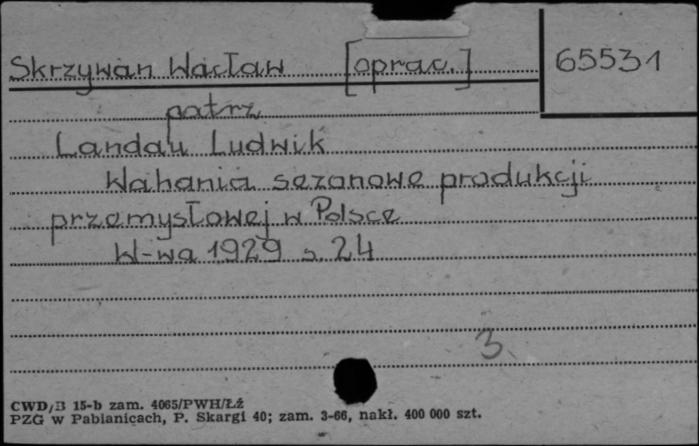 Skrzywan Wacław [oprac.] 65531
patrz
Landau Ludwik
Wahania sezonowe produkcji
przemysłowej w Polsce
W-wa 1929 s. 24
3
CWD/B 15-b zam. 4065/PWH/Łż
PZG w Pabianicach, P. Skargi 40; zam. 3-66, nakł. 400 000 szt.